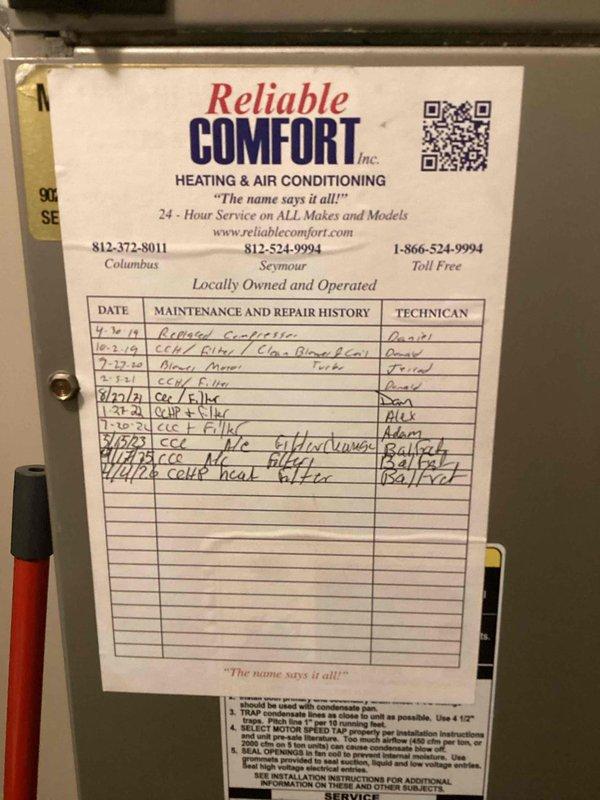 Reliable
COMFORT Inc.
HEATING & AIR CONDITIONING
"The name says it all!"
24 - Hour Service on ALL Makes and Models
www.reliablecomfort.com
812-372-8011 812-524-9994 1-866-524-9994
Columbus Seymour Toll Free
Locally Owned and Operated
DATE MAINTENANCE AND REPAIR HISTORY TECHNICAN
4-30-19 Replaced Compressor Daniel
10-2-19 CCH / Filter / Clean Blower & Coil Donald
9-27-20 Blower Motor Turbo Jerrod
2-5-21 CCH / Filter Donald
8/27/21 CCC / Filter Dan
1-27-22 CCHP + Filter Alex
7-20-22 CCC + Filter Adam
5/15/23 CCC A/C Filter change
CCC A/C Filter
CCHP heat Filter
"The name says it all!"
should be used with condensate pan.
3. TRAP condensate lines as close to unit as possible. Use 4 1/2"
traps. Pitch line 1" per 10 running feet.
4. SELECT MOTOR SPEED TAP properly per installation instructions
and unit pre-sale literature. Too much airflow (450 cfm per ton, or
2000 cfm on 5 ton units) can cause condensate blow off.
5. SEAL OPENINGS in fan coil to prevent internal moisture. Use
grommets provided to seal suction, liquid and low voltage entries.
Seal high voltage electrical entries.
SEE INSTALLATION INSTRUCTIONS FOR ADDITIONAL
INFORMATION ON THESE AND OTHER SUBJECTS.
SERVICE